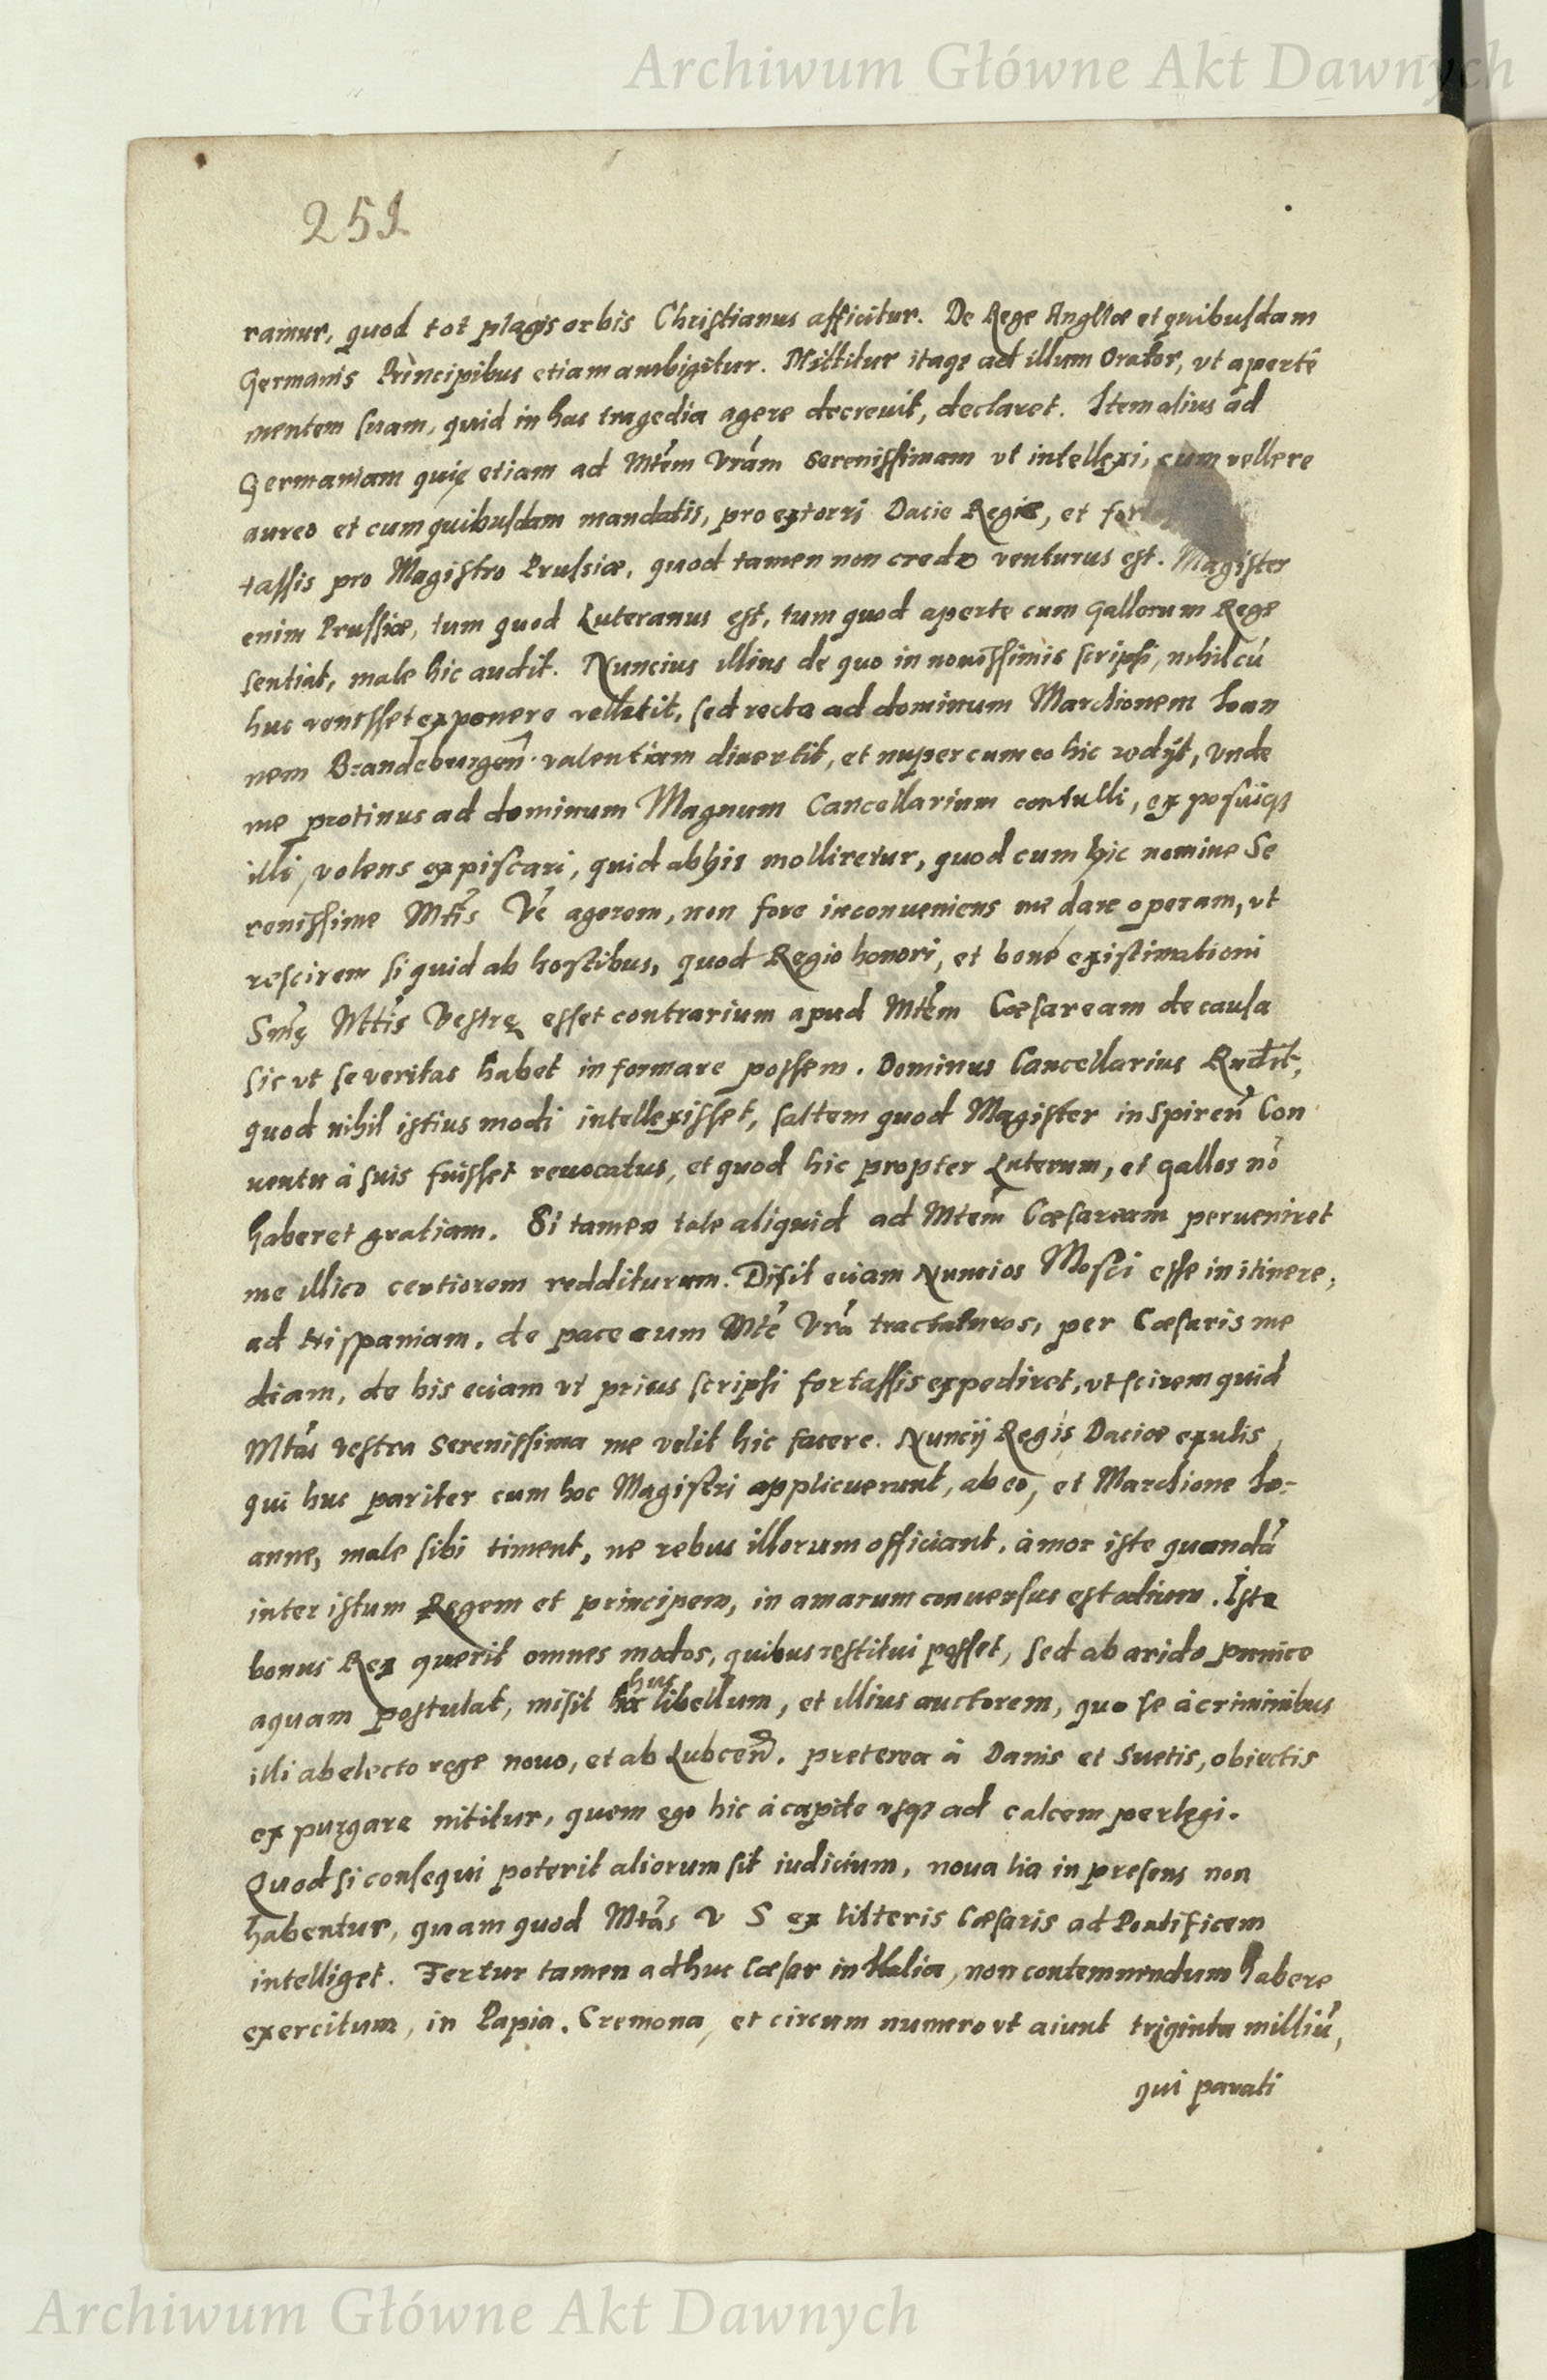 Archiwum Główne Akt Dawnych
252
ramur, quod tot plagis orbis Christianus afficitur. De Rege Angliæ et quibusdam
Germanis Principibus etiam ambigitur. Mittitur itaqȝ ad illum Orator, vt apertè
mentem suam, quid in hac tragedia agere decreuit, declaret. Item alius ad
Germaniam qui etiam ad Mtem Vram Serenissimam vt intellexi, cum vellere
aureo et cum quibusdam mandatis, pro extorri Dacie Rege, et for
tassis pro Magistro Prussiæ, quod tamen non credo venturus est. Magister
enim Prussiæ, tum quod Luteranus est, tum quod aperte cum Gallorum Rege
sentiat, male hic audit. Nuncius illius de quo in nouissimis scripsi, nihil cũ
huc venisset exponere, sed recta ad dominum Marchionem Ioan
nem Brandeburgeñ. valentiam diuertit, et nuper cum eo hic redijt, Vnde
me protinus ad dominum Magnum Cancellarium contulli, exposuiqȝ
illi, volens expiscari, quid ab his molliretur, quod cum hic nomine Se
renissime Mtis Vẽ agerem, non fore inconueniens me dare operam, vt
rescirem si quid ab hostibus, quod Regio honori, et bone existimationi
Smę Mtis Vestrę esset contrarium apud Mtem Cæsaream de causa
sic vt se veritas habet informare possem. Dominus Cancellarius Rndit,
quod nihil istius modi intellexisset, saltem quod Magister in Spireñ Con
uentu à suis fuisset reuocatus, et quod hic propter Luterum, et Gallos nõ
haberet gratiam. Si tamen tale aliquid ad Mtem Cæsaream perueniret
me illico certiorem redditurum. Dixit eciam Nuncios Mosci esse in itinere,
ad Hispaniam, de pace cum Mte Vra tractaturos, per Cæsaris me
diam, de his eciam vt prius scripsi fortassis expediret, vt scirem quid
Mtas Vestra Serenissima me velit hic facere. Nuncij Regis Daciæ exulis,
qui huc pariter cum hoc Magistri applicuerunt, ab eo, et Marchione Io-
anne, male sibi timent, ne rebus illorum officiant, amor iste quondã
inter istum Regem et principem, in amarum conuersus est odium. Iste
bonus Rex querit omnes modos, quibus restitui posset, sed ab arido pumice
aquam postulat, misit huc libellum, et illius auctorem, quo se à criminibus
illi ab electo rege nouo, et ab Lubceñ. preterea à Danis et Suetis, obiectis
expurgare nititur, quem ego hic à capite vsqȝ ad calcem perlegi.
Quod si consequi poterit aliorum sit iudicium, noua lia in presens non
habentur, quam quod Mtas V S ex litteris Cæsaris ad Pontificem
intelliget. Fertur tamen adhuc Cæsar in Italia, non contemnendum habere
exercitum, in Papia, Cremona, et circum numero vt aiunt triginta milliũ,
qui parati
Archiwum Główne Akt Dawnych